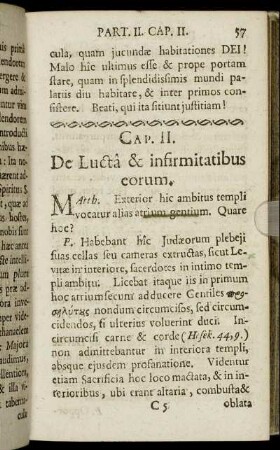 PART. II. CAP. II. 57
cula, quam jucundæ habitationes DEI!
Malo hic ultimus esse & prope portam
stare, quam in splendidissimis mundi pa-
latiis diu habitare, & inter primos con-
sistere. Beati, qui ita sitiunt justitiam!
CAP. II.
De Luctâ & infirmitatibus
eorum.
MAtth. Exterior hic ambitus templi
vocatur alias atrium gentium. Quare
hoc?
P. Habebant hîc Judæorum plebeji
suas cellas seu cameras extructas, sicut Le-
vitæ in interiore, sacerdotes in intimo tem-
pli ambitu. Licebat itaque iis in primum
hoc atrium secum adducere Gentiles προ-
σηλύτους nondum circumcisos, sed circum-
cidendos, si ulterius voluerint duci. In-
circumcisi carne & corde (Hesek. 44, 9.)
non admittebantur in interiora templi,
absque ejusdem profanatione. Videntur
etiam Sacrificia hoc loco mactata, & in in-
terioribus, ubi erant altaria, combusta &
C 5 oblata